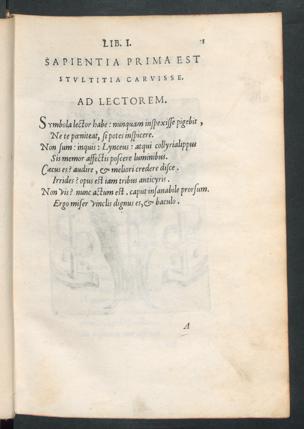 LIB. I.
SAPIENTIA PRIMA EST
STVLTITIA CARVISSE.
AD LECTOREM.
Symbola lector habe: nunquam inspexisse pigebit,
Ne te pœniteat, si potes inspicere.
Non sum: inquis: Lynceus: atqui collyria lippus
Sis memor affectis poscere luminibus.
Cæcus es? audire, & meliori credere disce.
Irrides? opus est iam tribus anticyris.
Non vis? nunc actum est. caput insanabile prorsum.
Ergo miser vinclis dignus es, & baculo.
A